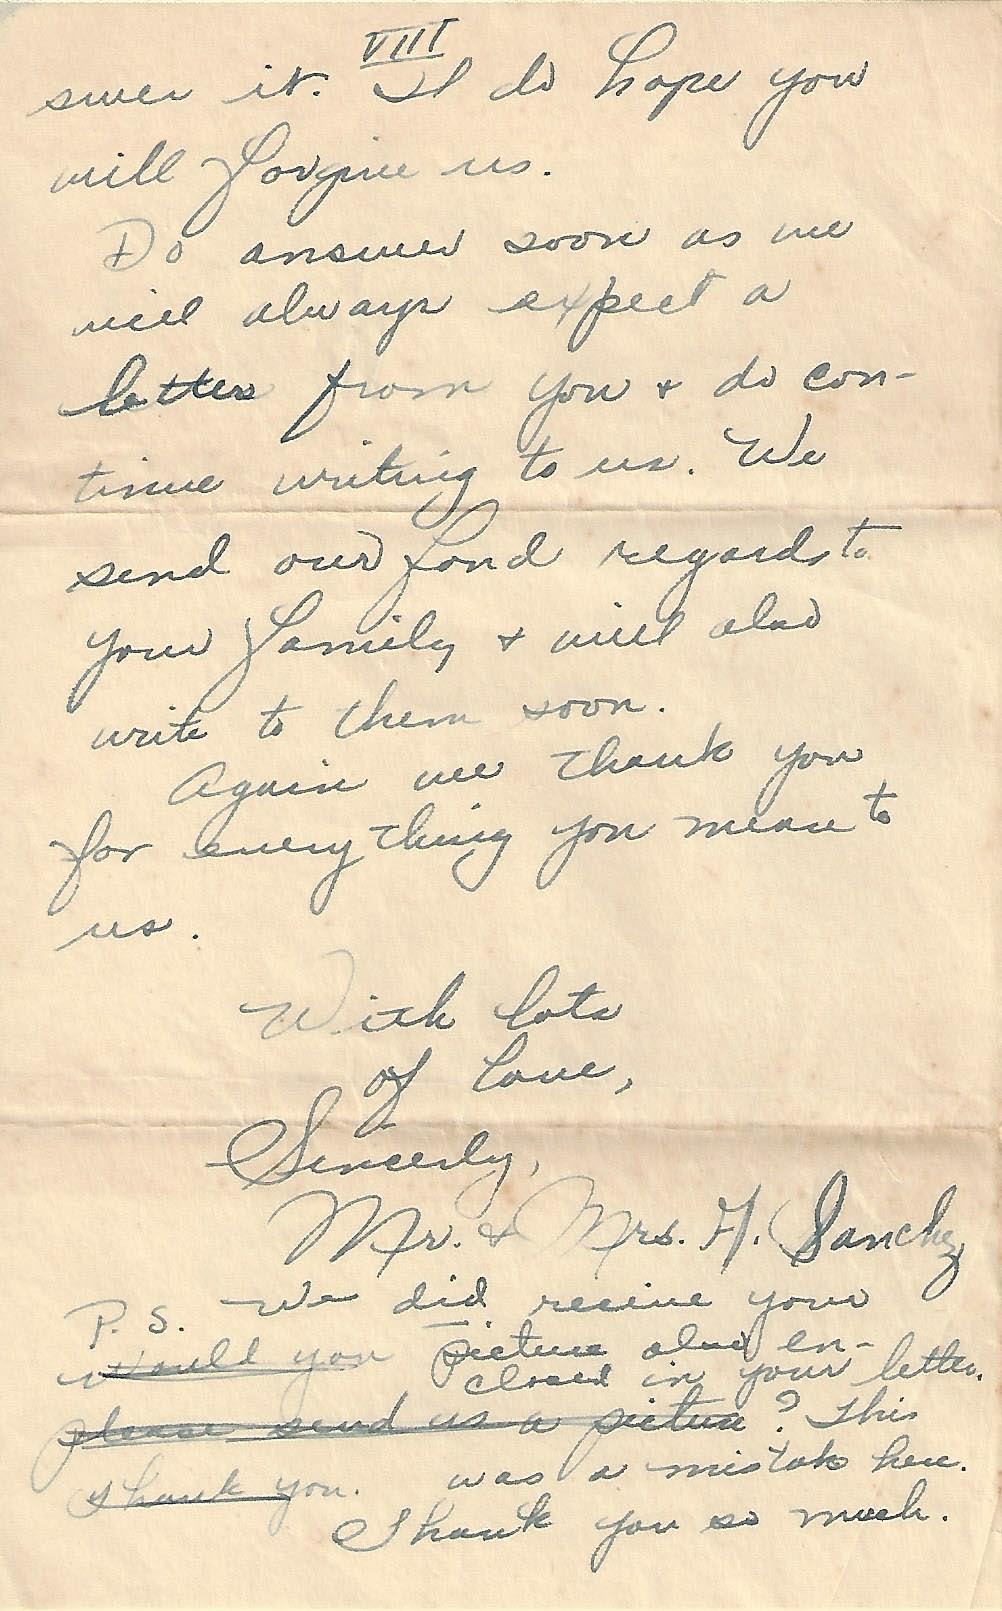 VIII
swer it. I do hope you
will forgive us.
Do answer soon as we
will always expect a
letter from you & do con-
tinue writing to us. We
send our fond regards to
your family & will also
write to them soon.
Again we thank you
for everything you mean to
us.
With lots
of love,
Sincerly,
Mr. & Mrs. H. Sanchez
P.S. We did recieve your
Would you picture also en-
closed in your letter.
please send us a picture? This
Thank you. was a mistake here.
Thank you so much.